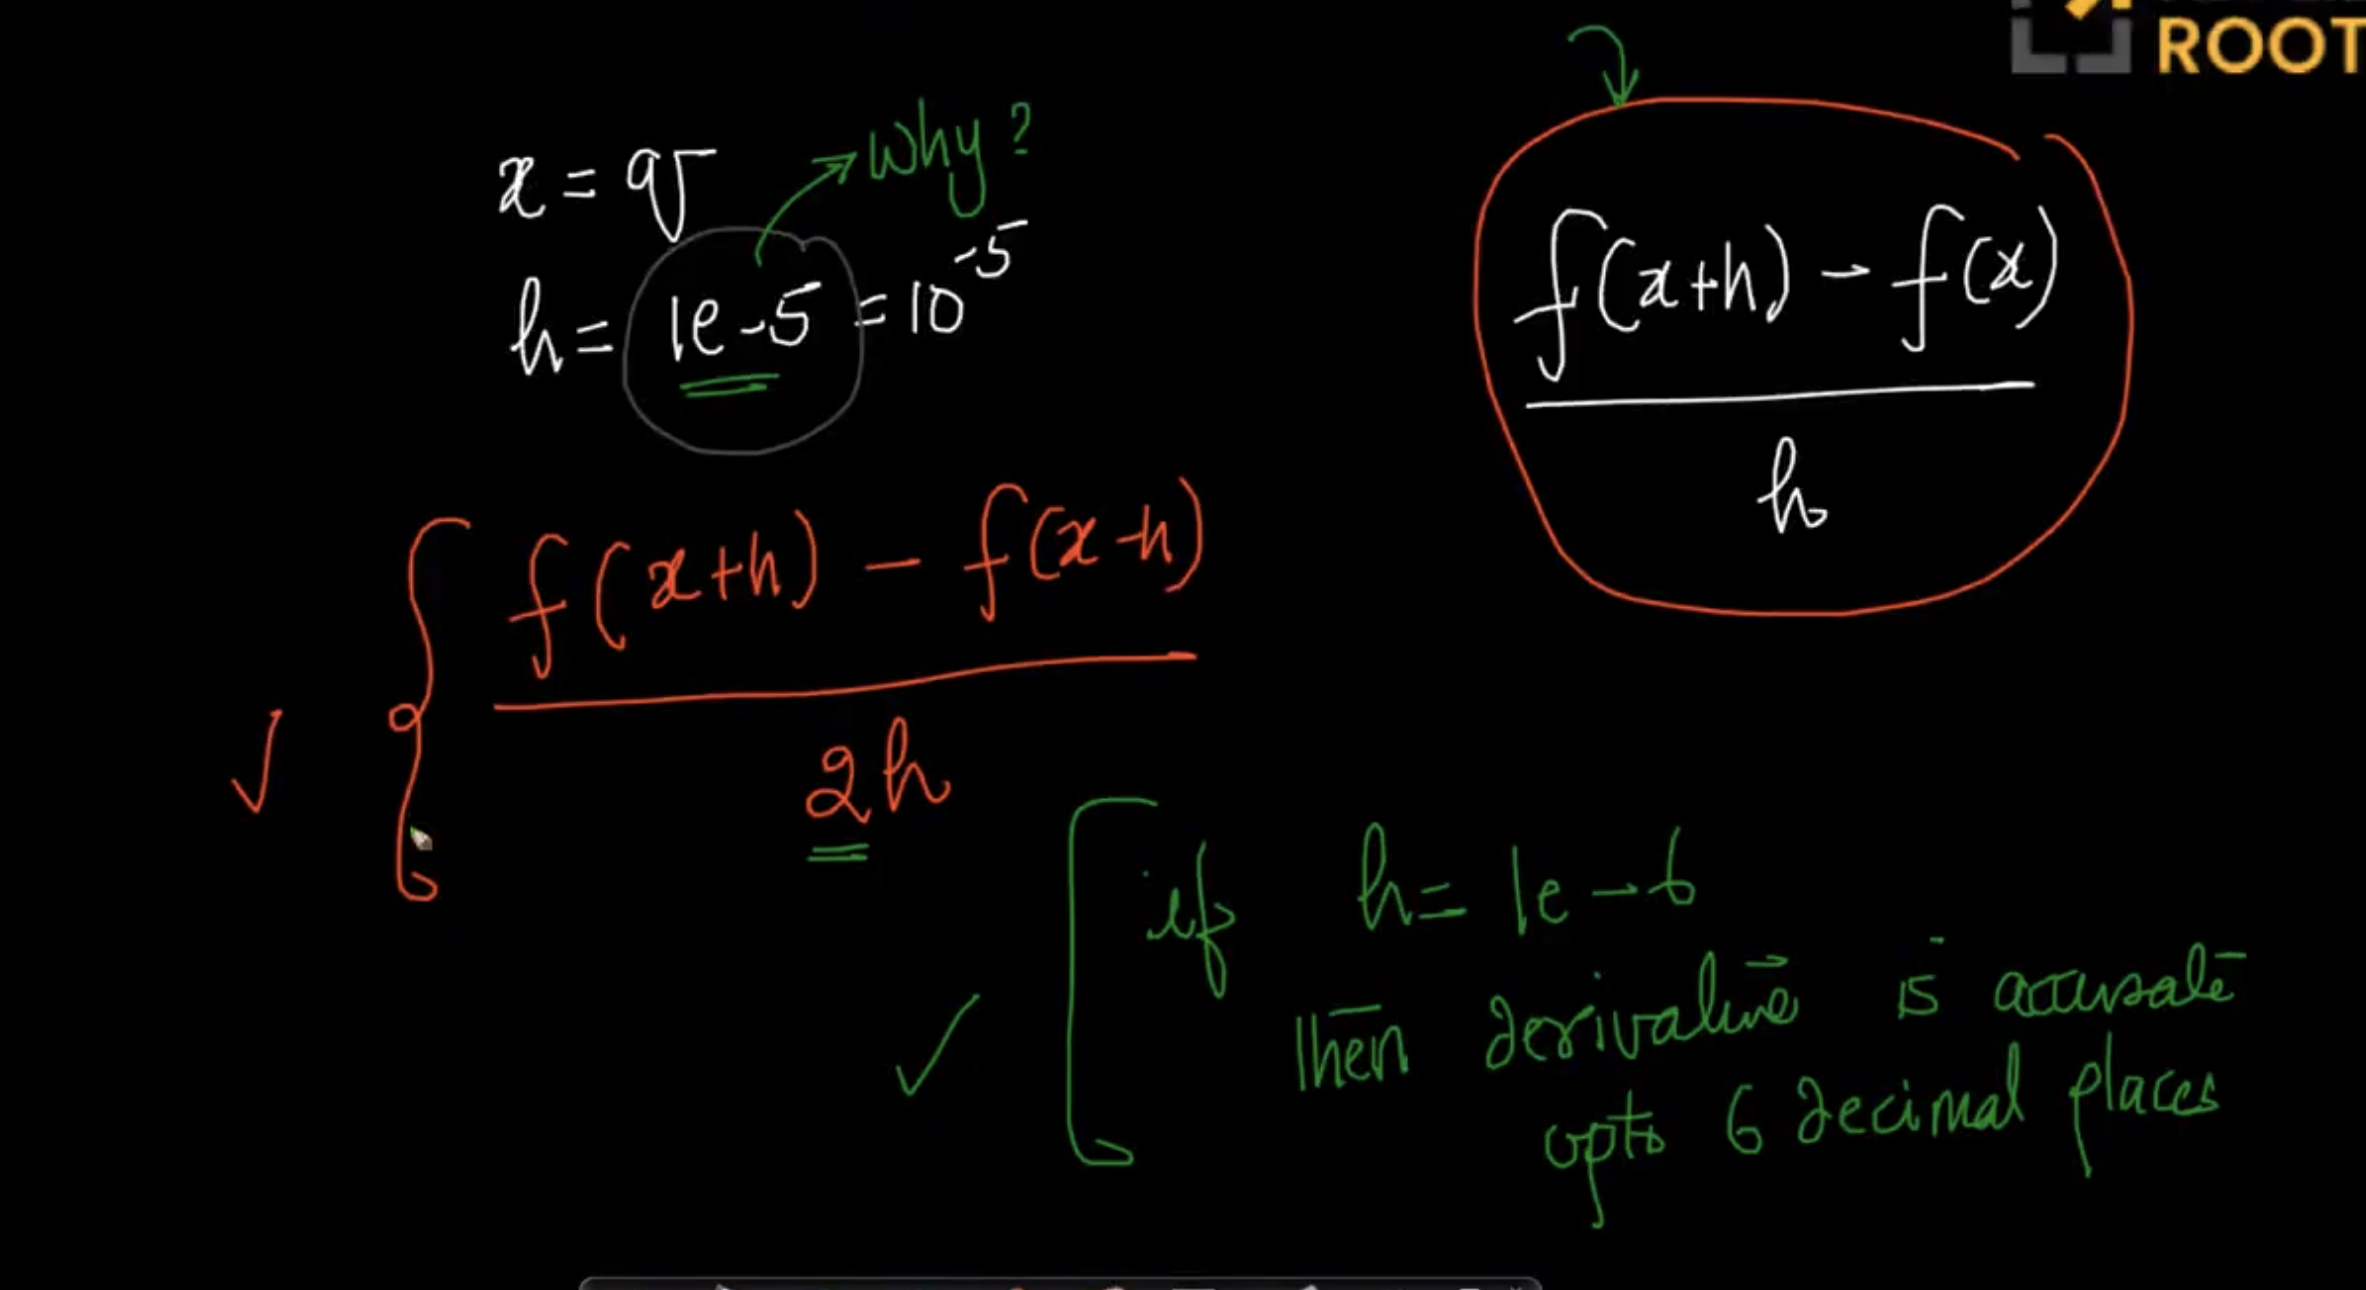 ROOT
Why?
x = 95
h = 1e-5 = 10^-5
f(x+h) - f(x)
h
f(x+h) - f(x-h)
2h
if h = 1e-6
then derivative is accurate
upto 6 decimal places